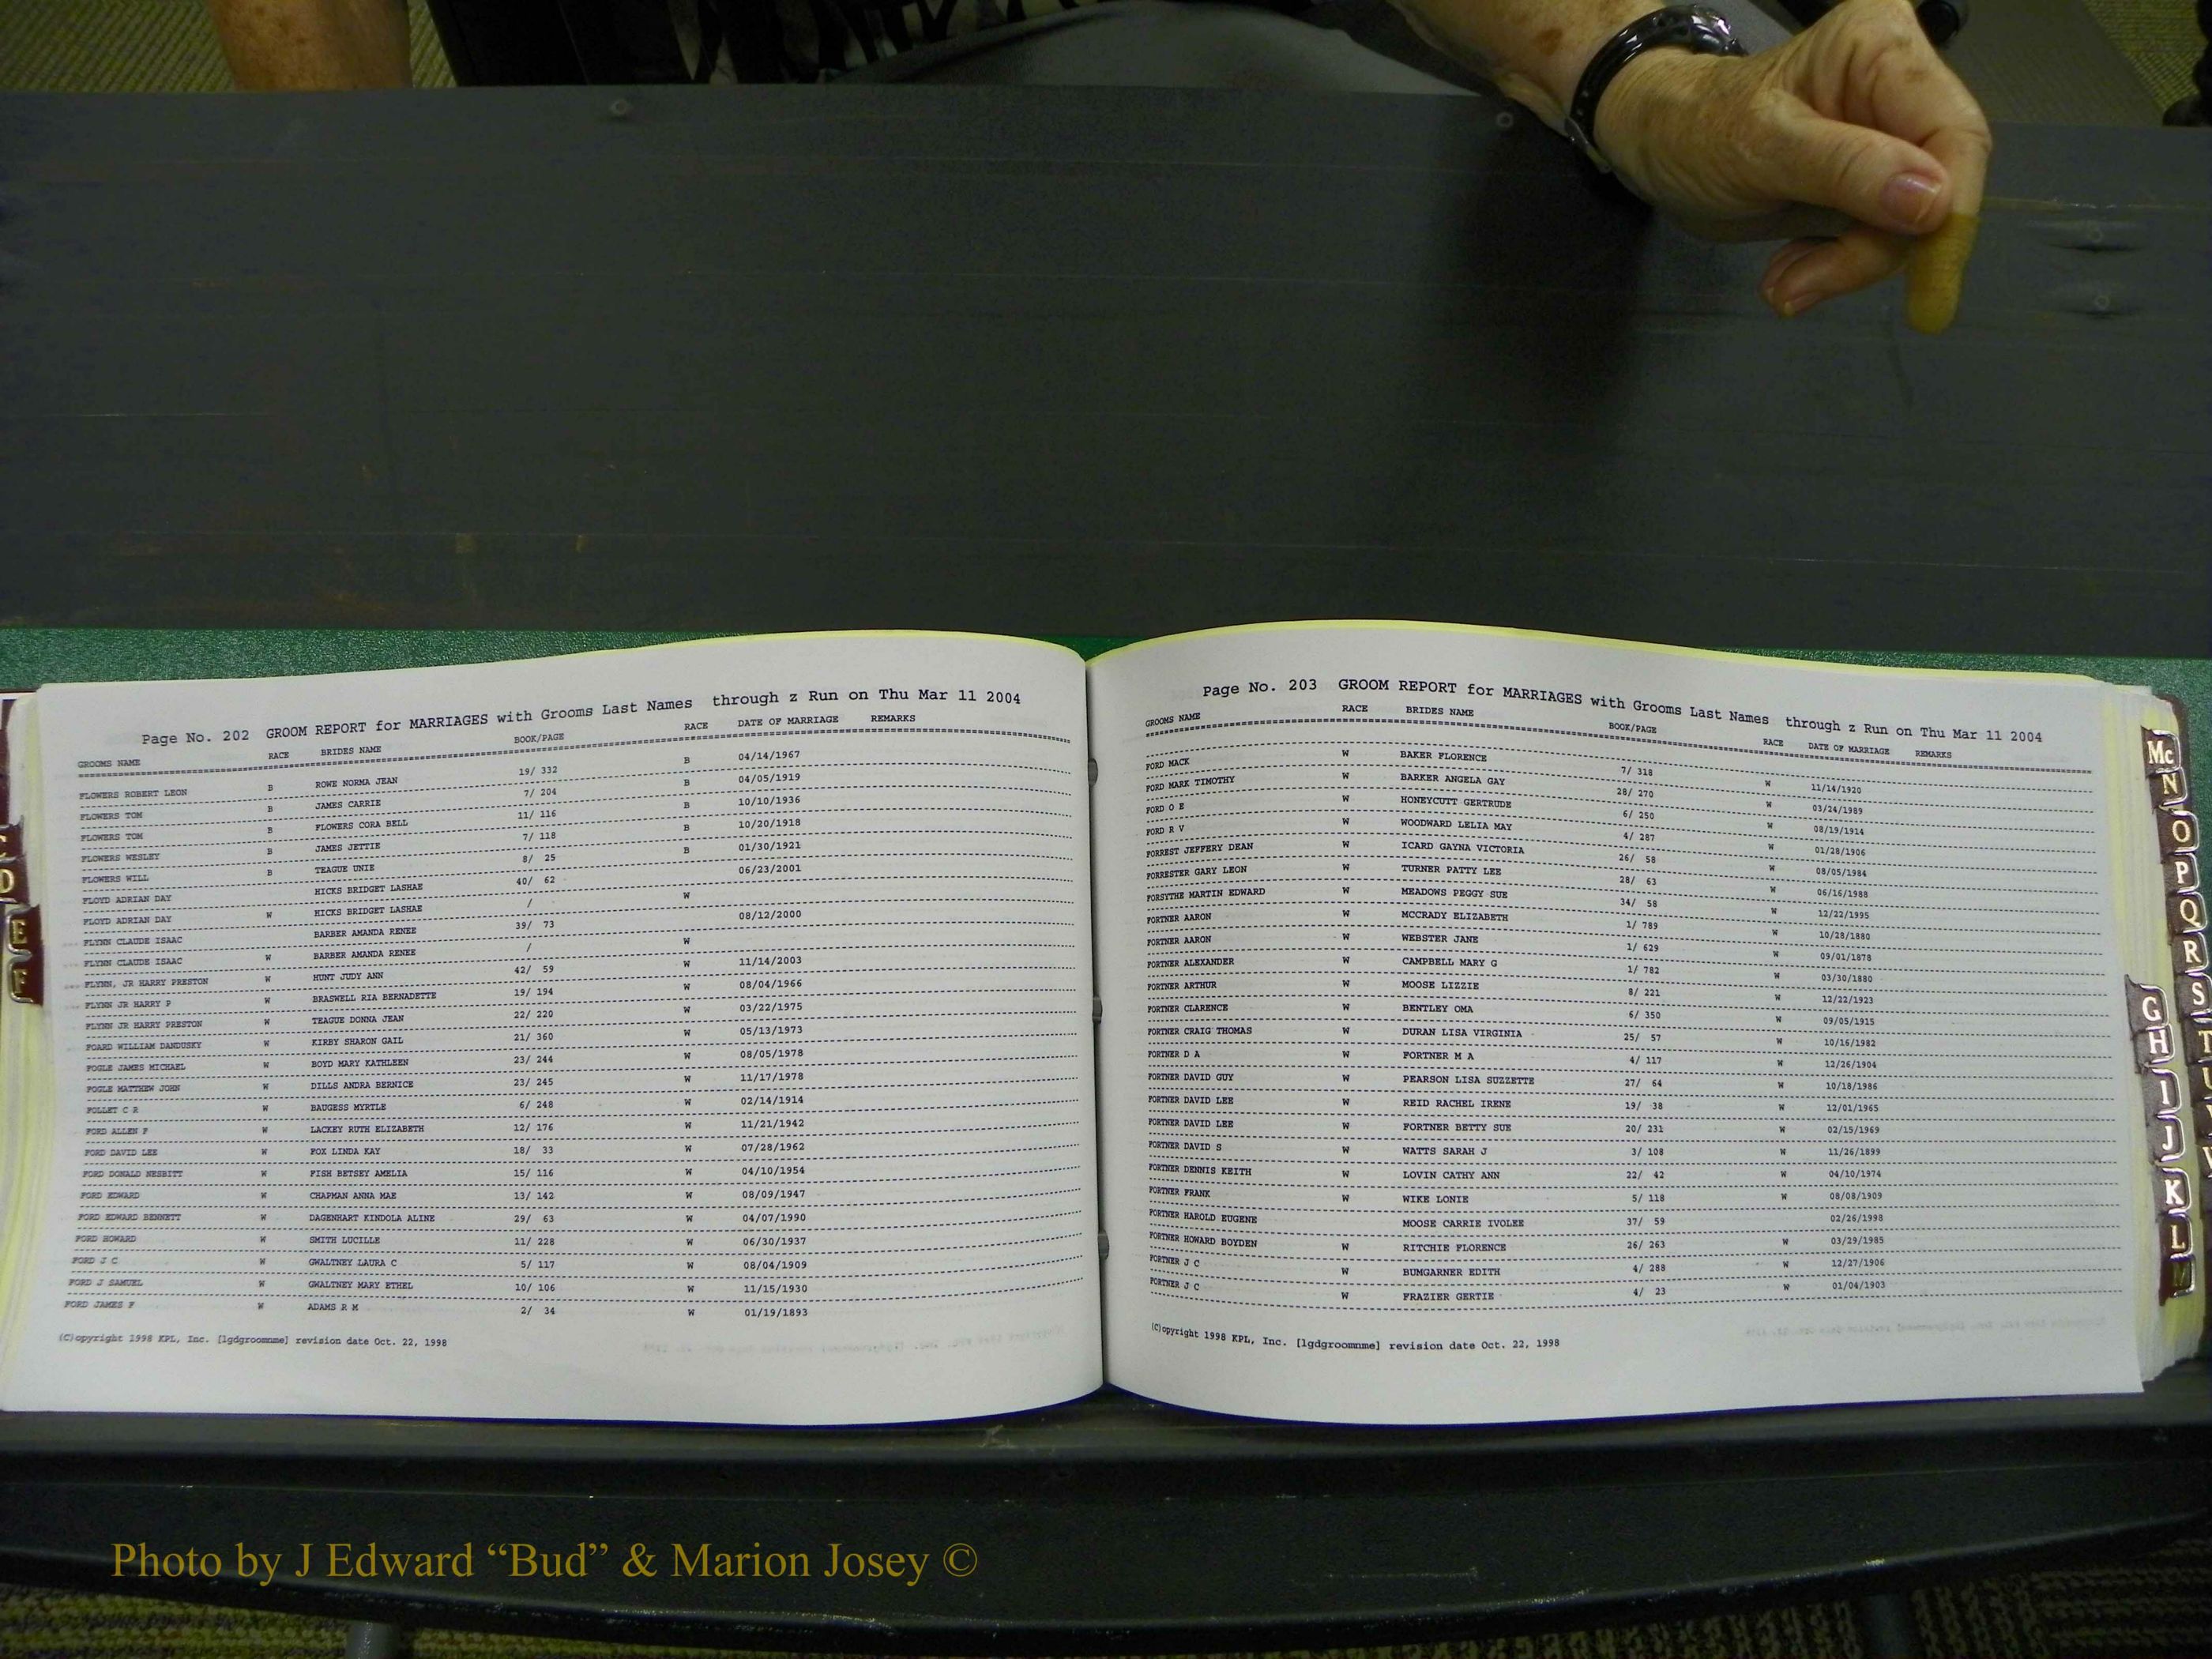 Page No. 202 GROOM REPORT for MARRIAGES with Grooms Last Names through z Run on Thu Mar 11 2004
GROOMS NAME RACE BRIDES NAME BOOK/PAGE RACE DATE OF MARRIAGE REMARKS
FLOWERS ROBERT LEON B ROWE NORMA JEAN 19/ 332 B 04/14/1967
FLOWERS TOM B JAMES CARRIE 7/ 204 B 04/05/1919
FLOWERS TOM B FLOWERS CORA BELL 11/ 116 B 10/10/1936
FLOWERS WESLEY B JAMES JETTIE 7/ 118 B 10/20/1918
FLOWERS WILL B TEAGUE UNIE 8/ 25 B 01/30/1921
FLOYD ADRIAN DAY HICKS BRIDGET LASHAE 40/ 62 06/23/2001
FLOYD ADRIAN DAY W HICKS BRIDGET LASHAE / W
FLYNN CLAUDE ISAAC BARBER AMANDA RENEE 39/ 73 08/12/2000
FLYNN CLAUDE ISAAC W BARBER AMANDA RENEE / W
FLYNN, JR HARRY PRESTON W HUNT JUDY ANN 42/ 59 W 11/14/2003
FLYNN JR HARRY P W BRASWELL RIA BERNADETTE 19/ 194 W 08/04/1966
FLYNN JR HARRY PRESTON W TEAGUE DONNA JEAN 22/ 220 W 03/22/1975
FOARD WILLIAM DANDUSKY W KIRBY SHARON GAIL 21/ 360 W 05/13/1973
FOGLE JAMES MICHAEL W BOYD MARY KATHLEEN 23/ 244 W 08/05/1978
FOGLE MATTHEW JOHN W DILLS ANDRA BERNICE 23/ 245 W 11/17/1978
FOLLET C R W BAUGESS MYRTLE 6/ 248 W 02/14/1914
FORD ALLEN F W LACKEY RUTH ELIZABETH 12/ 176 W 11/21/1942
FORD DAVID LEE W FOX LINDA KAY 18/ 33 W 07/28/1962
FORD DONALD NESBITT W FISH BETSEY AMELIA 15/ 116 W 04/10/1954
FORD EDWARD W CHAPMAN ANNA MAE 13/ 142 W 08/09/1947
FORD EDWARD BENNETT W DAGENHART KINDOLA ALINE 29/ 63 W 04/07/1990
FORD HOWARD W SMITH LUCILLE 11/ 228 W 06/30/1937
FORD J C W GWALTNEY LAURA C 5/ 117 W 08/04/1909
FORD J SAMUEL W GWALTNEY MARY ETHEL 10/ 106 W 11/15/1930
FORD JAMES F W ADAMS R M 2/ 34 W 01/19/1893
(C)opyright 1998 KPL, Inc. [lgdgroomnme] revision date Oct. 22, 1998
Page No. 203 GROOM REPORT for MARRIAGES with Grooms Last Names through z Run on Thu Mar 11 2004
GROOMS NAME RACE BRIDES NAME BOOK/PAGE RACE DATE OF MARRIAGE REMARKS
FORD MACK W BAKER FLORENCE 7/ 318 W 11/14/1920
FORD MARK TIMOTHY W BARKER ANGELA GAY 28/ 270 W 03/24/1989
FORD O E W HONEYCUTT GERTRUDE 6/ 250 W 08/19/1914
FORD R V W WOODWARD LELIA MAY 4/ 287 W 01/28/1906
FORREST JEFFERY DEAN W ICARD GAYNA VICTORIA 26/ 58 W 08/05/1984
FORRESTER GARY LEON W TURNER PATTY LEE 28/ 63 W 06/16/1988
FORSYTHE MARTIN EDWARD W MEADOWS PEGGY SUE 34/ 58 W 12/22/1995
FORTNER AARON W MCCRADY ELIZABETH 1/ 789 W 10/28/1880
FORTNER AARON W WEBSTER JANE 1/ 629 W 09/01/1878
FORTNER ALEXANDER W CAMPBELL MARY G 1/ 782 W 03/30/1880
FORTNER ARTHUR W MOOSE LIZZIE 8/ 221 W 12/22/1923
FORTNER CLARENCE W BENTLEY OMA 6/ 350 W 09/05/1915
FORTNER CRAIG THOMAS W DURAN LISA VIRGINIA 25/ 57 W 10/16/1982
FORTNER D A W FORTNER M A 4/ 117 W 12/26/1904
FORTNER DAVID GUY W PEARSON LISA SUZZETTE 27/ 64 W 10/18/1986
FORTNER DAVID LEE W REID RACHEL IRENE 19/ 38 W 12/01/1965
FORTNER DAVID LEE W FORTNER BETTY SUE 20/ 231 W 02/15/1969
FORTNER DAVID S W WATTS SARAH J 3/ 108 W 11/26/1899
FORTNER DENNIS KEITH W LOVIN CATHY ANN 22/ 42 W 04/10/1974
FORTNER FRANK W WIKE LONIE 5/ 118 W 08/08/1909
FORTNER HAROLD EUGENE MOOSE CARRIE IVOLEE 37/ 59 02/26/1998
FORTNER HOWARD BOYDEN W RITCHIE FLORENCE 26/ 263 W 03/29/1985
FORTNER J C W BUMGARNER EDITH 4/ 288 W 12/27/1906
FORTNER J C W FRAZIER GERTIE 4/ 23 W 01/04/1903
(C)opyright 1998 KPL, Inc. [lgdgroomnme] revision date Oct. 22, 1998
C
D
E
F
G
H
I
J
K
L
M
Mc
N
O
P
Q
R
S
T
Photo by J Edward “Bud” & Marion Josey ©